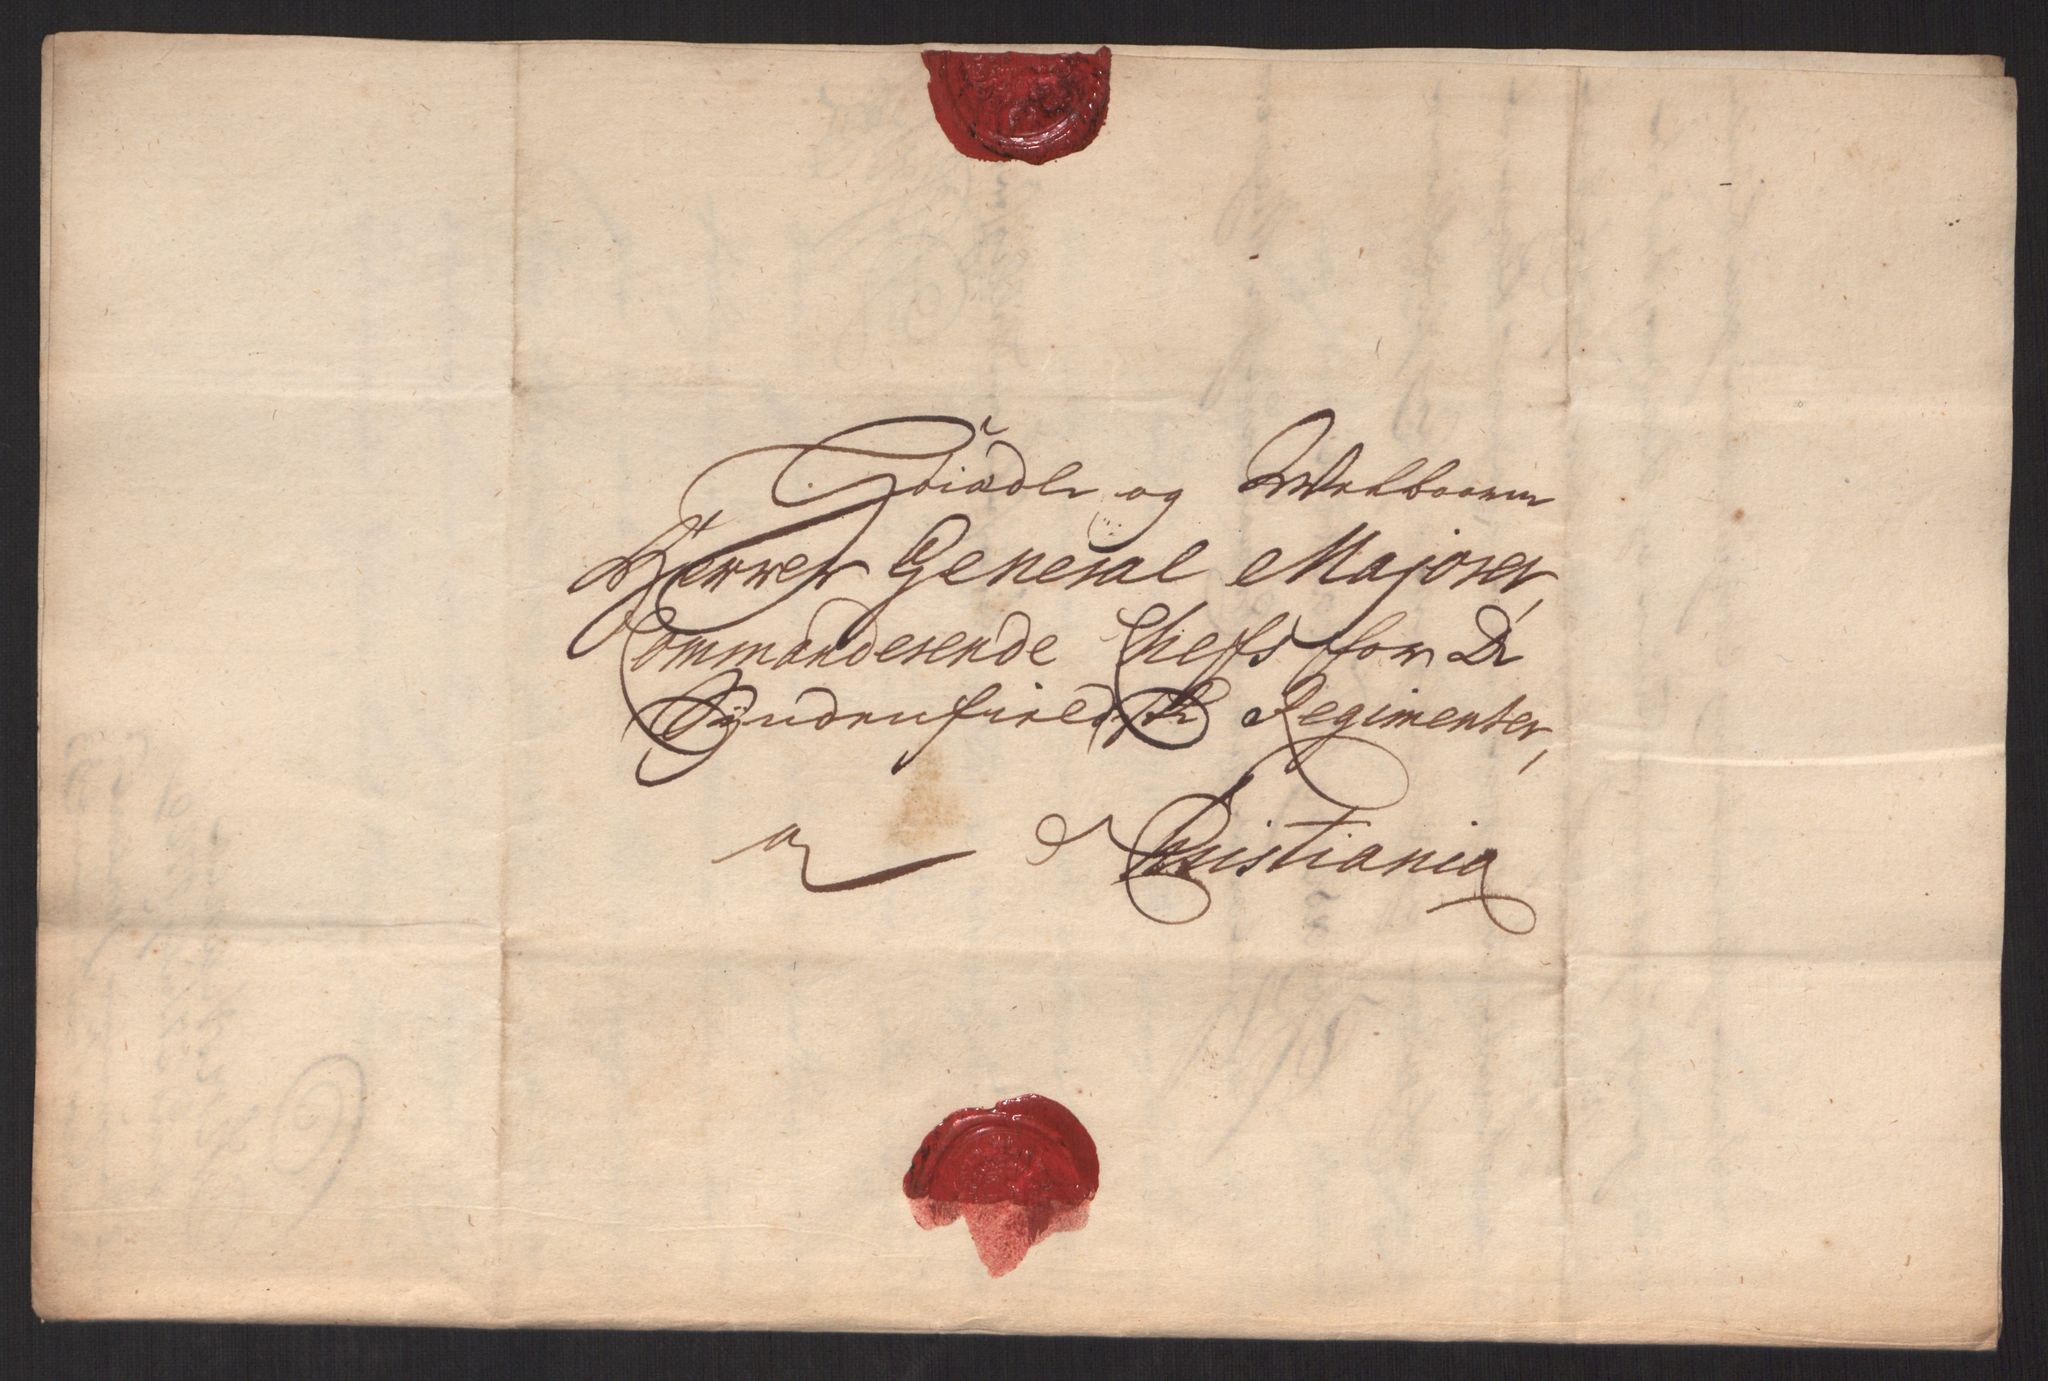 Høiædle og Welbaarne
Herrer General Majorer,
Commanderende Cheffs for De
Syndenfieldske Regimenter,
a Christiania